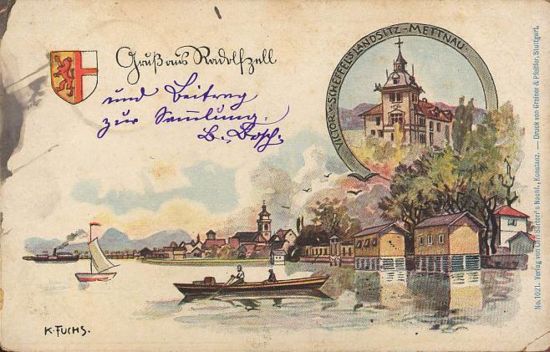 Gruß aus Radolfzell
und Beitrag
zur Sammlung.
B. Bosch.
VICTOR v. SCHEFFELS LANDSITZ-METTNAU.
K. FUCHS.
No. 1021. Verlag von Carl Börner's Nachf., Konstanz. — Druck von Greiner & Pfeiffer, Stuttgart.